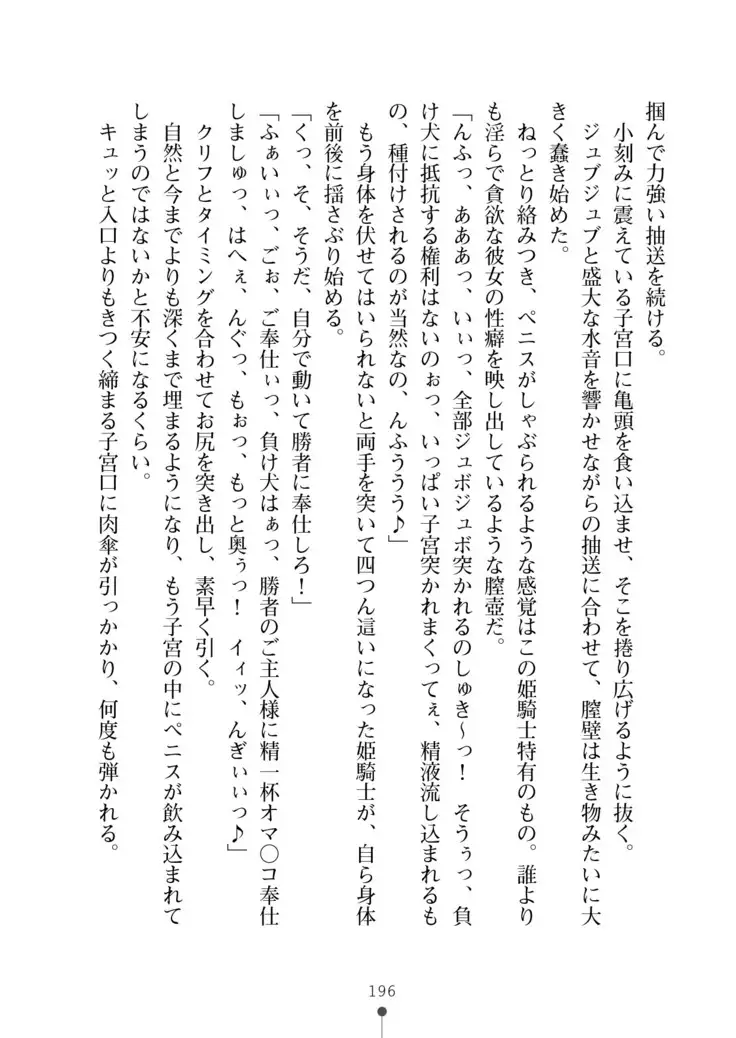 掴んで力強い抽送を続ける。
小刻みに震えている子宮口に亀頭を食い込ませ、そこを捲り広げるように抜く。
ジュブジュブと盛大な水音を響かせながらの抽送に合わせて、膣壁は生き物みたいに大
きく蠢き始めた。
ねっとり絡みつき、ペニスがしゃぶられるような感覚はこの姫騎士特有のもの。誰より
も淫らで貪欲な彼女の性癖を映し出しているような膣壺だ。
「んふっ、あああっ、いぃっ、全部ジュボジュボ突かれるのしゅき～っ！　そうぅっ、負
け犬に抵抗する権利はないのぉっ、いっぱい子宮突かれまくってぇ、精液流し込まれるも
の、種付けされるのが当然なの、んふううう♪」
もう身体を伏せてはいられないと両手を突いて四つん這いになった姫騎士が、自ら身体
を前後に揺さぶり始める。
「くっ、そ、そうだ、自分で動いて勝者に奉仕しろ！」
「ふぁいぃっ、ごぉ、ご奉仕ぃっ、負け犬はぁっ、勝者のご主人様に精一杯オマ〇コ奉仕
しましゅっ、はへぇ、んぐっ、もぉっ、もっと奥ぅっ！　イィッ、んぎぃぃっ♪」
クリフとタイミングを合わせてお尻を突き出し、素早く引く。
自然と今までよりも深くまで埋まるようになり、もう子宮の中にペニスが飲み込まれて
しまうのではないかと不安になるくらい。
キュッと入口よりもきつく締まる子宮口に肉傘が引っかかり、何度も弾かれる。
196